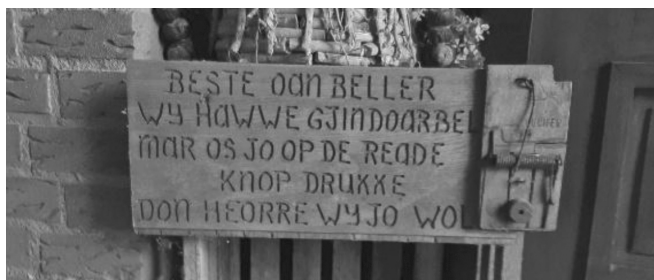 BESTE OAN BELLER
WY HAWWE GJIN DOARBEL
MAR OS JO OP DE READE
KNOP DRUKKE
DON HEORRE WY JO WOL